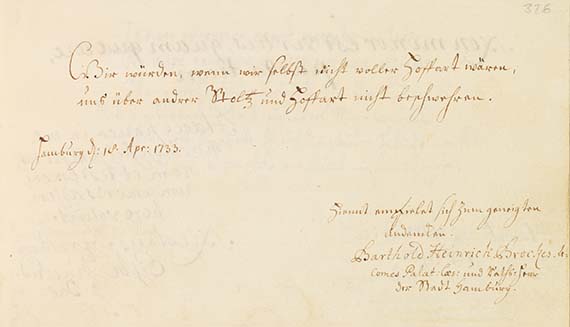 326
Wir würden, wenn wir selbst nicht voller Hoffart wären,
uns über andrer Stoltz und Hoffart nicht beschwehren.
Hamburg d: 18. Apr: 1733.
Hiemit empfielet sich zum geneigten
Andencken.
Barthold Heinrich Brockes.
comes Palat. Caes: und Rathsherr
der Stadt Hamburg.